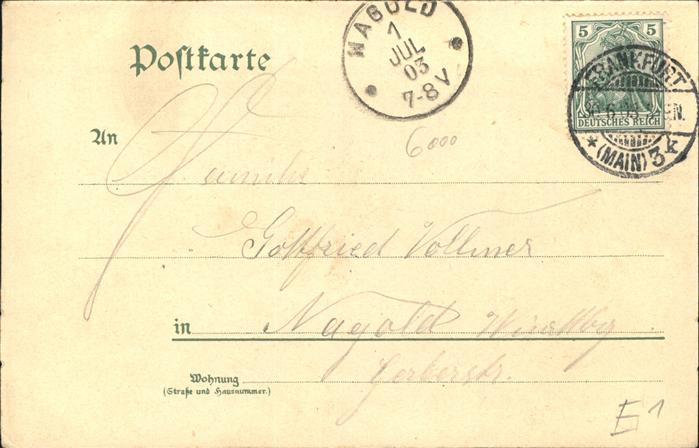 Postkarte
NAGOLD
1
JUL
03
7-8 V
5 5
DEUTSCHES REICH
FRANKFURT
30.6.03
N.
* (MAIN) 3k
6000
An
Familie
Gottfried Vollmer
in Nagold Württbg
Gerberstr.
Wohnung
(Straße und Hausnummer.)
E1